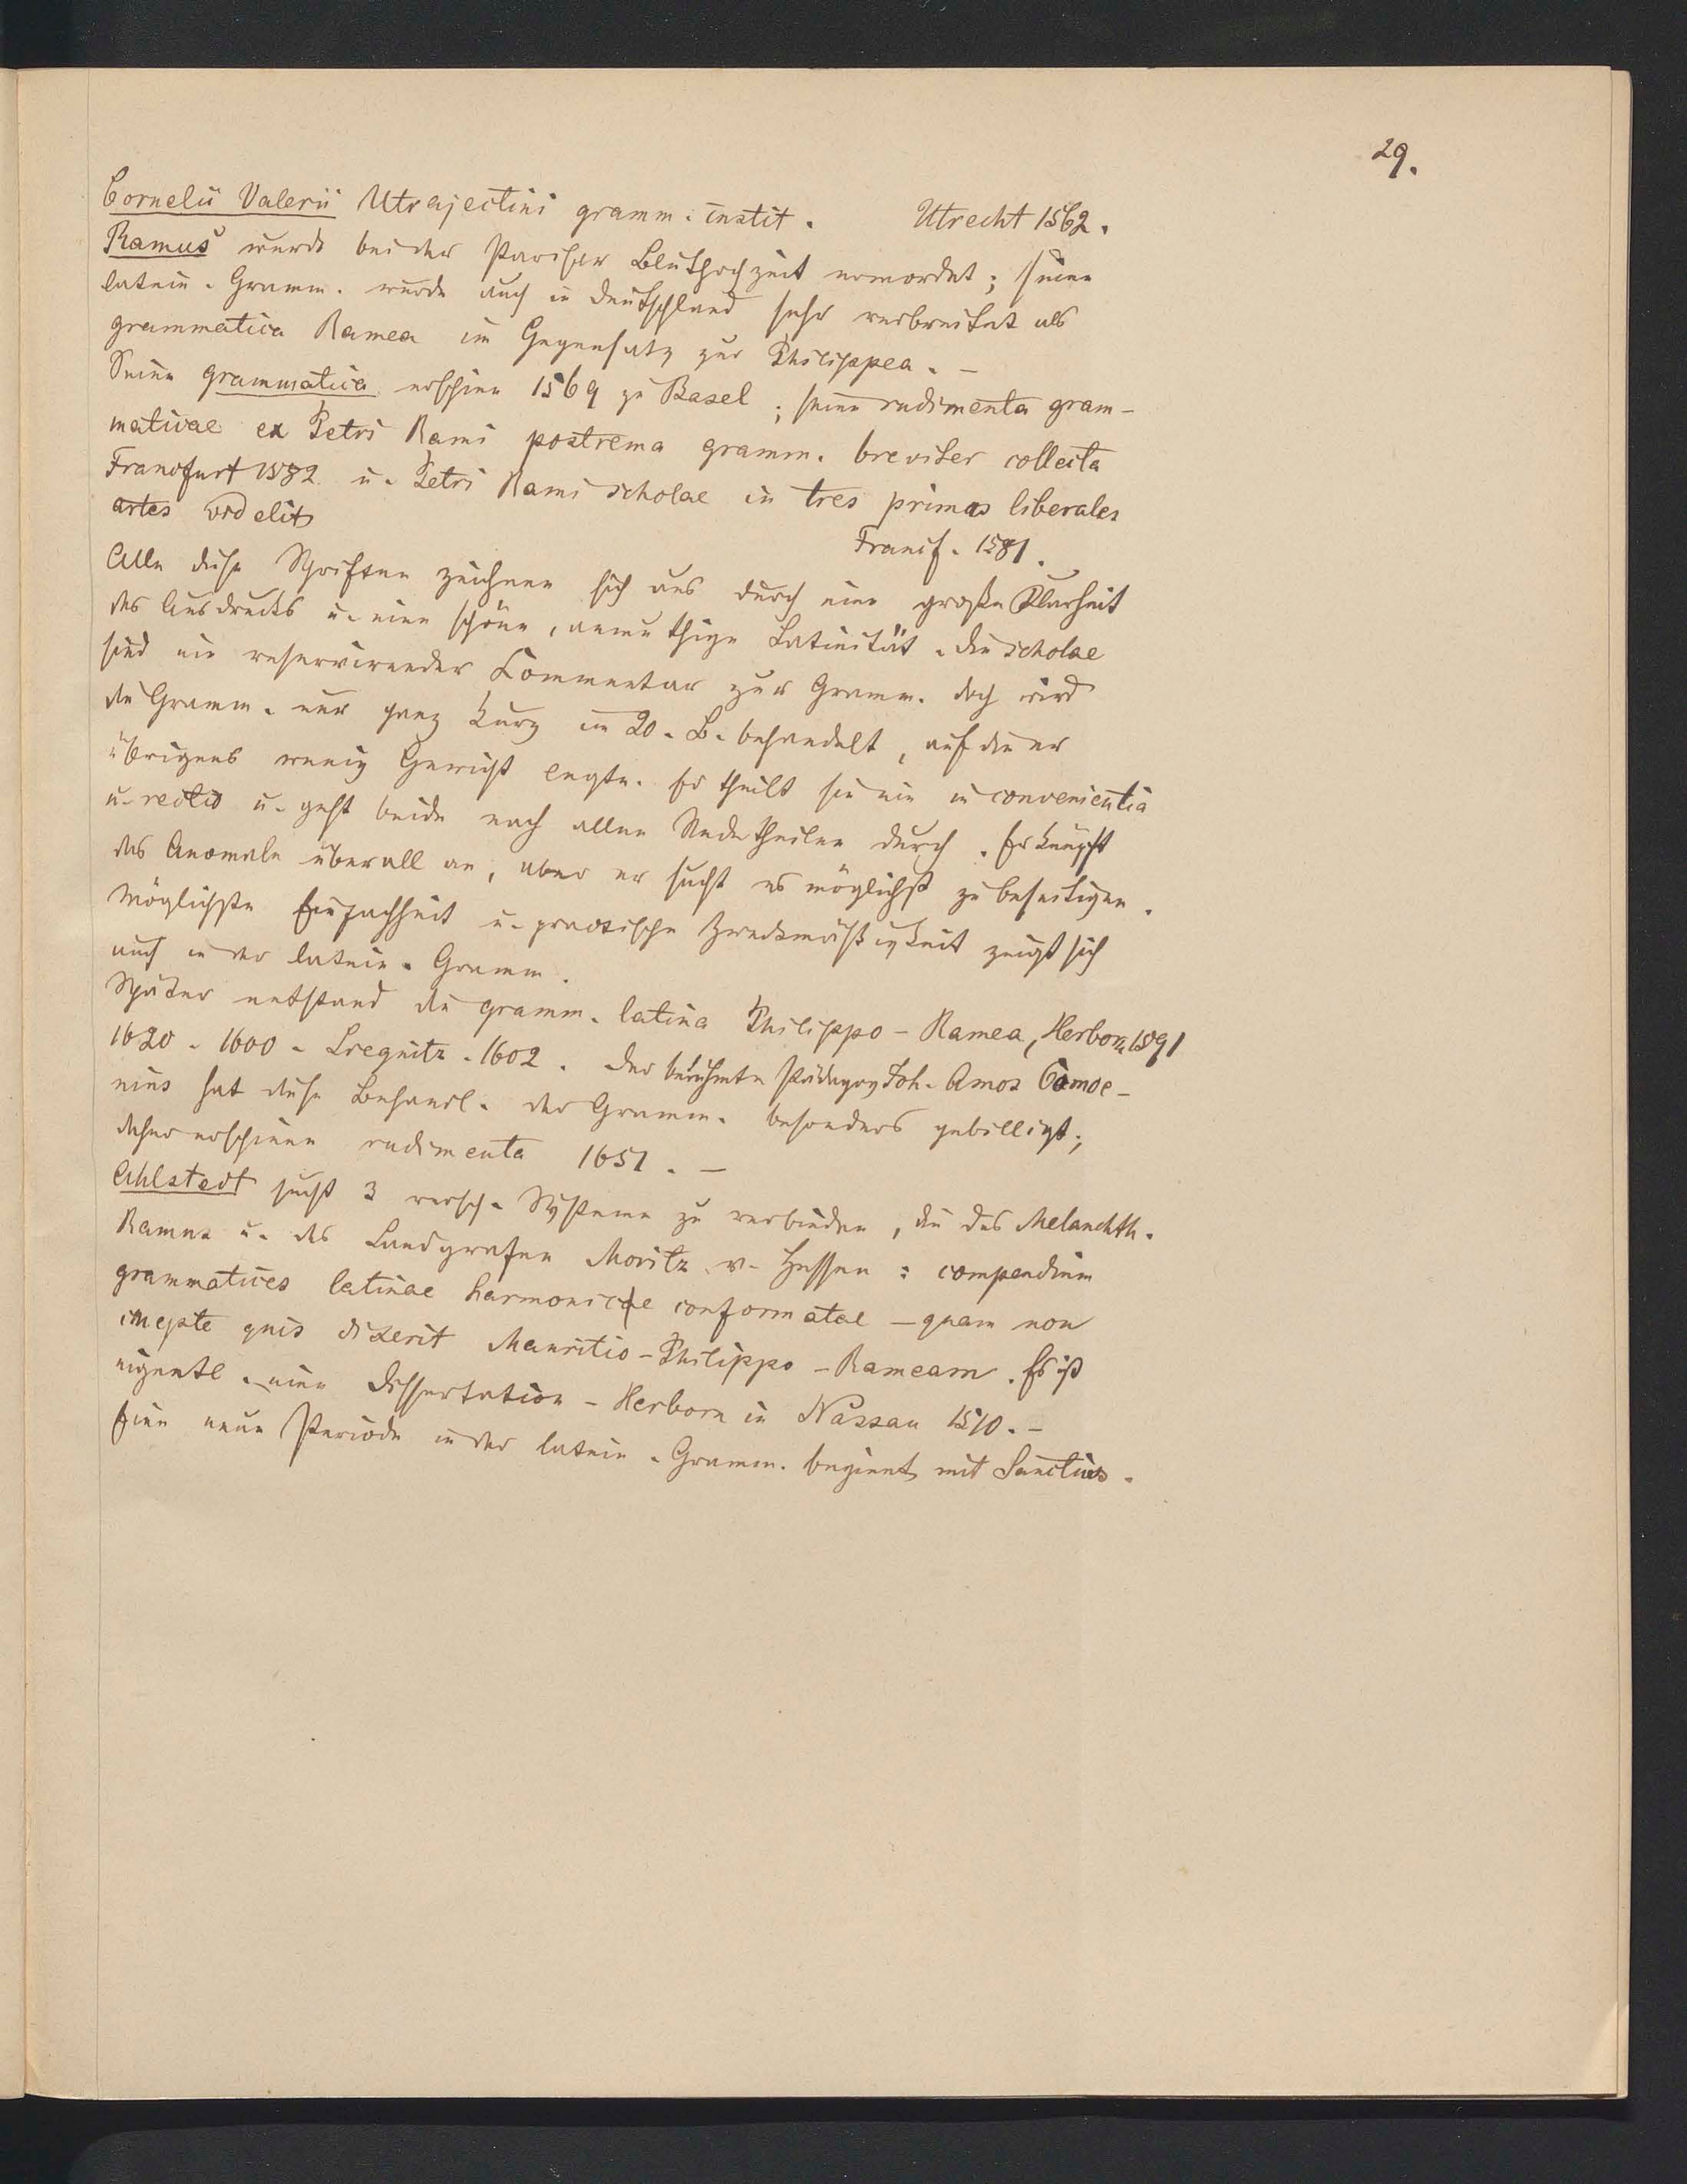 29.
Cornelii Valerii Utrajectini gramm. instit. Utrecht 1562.
Ramus wurde bei der Pariser Bluthochzeit ermordet; seine
latein. Gramm. wurde auch in Deutschland sehr verbreitet als
grammatica Ramea im Gegensatz zur Philippea. –
Seine grammatica erschien 1569 zu Basel; seine rudimenta gram-
maticae ex Petri Rami postrema gramm. breviter collecta
Francfurt 1582 u. Petri Rami scholae in tres primas liberales
artes
Francf. 1581.
Alle diese Schriften zeichnen sich aus durch eine große Klarheit
des Ausdrucks u. eine schöne, anmuthige Latinität. Die scholae
sind ein Commentar zur Gramm. doch wird
die Gramm. nur ganz kurz im 20. B. behandelt, auf die er
übrigens wenig Gewicht legte. Er theilt sie ein in convenientia
u. rectio u. geht beide nach allen Redetheilen durch. Er knüpft
das Anomale überall an, aber er sucht es möglichst zu beseitigen.
Möglichste Einfachheit u. practische Zweckmäßigkeit zeigt sich
auch in der latein. Gramm.
Später entstand die gramm. latina Philippo-Ramea, Herborn 1591
1620. 1600. Liegnitz. 1602. Der berühmte Pädagog Joh. Amos Comoe-
nius hat diese Behandl. der Gramm. besonders gebilligt;
daher erschienen rudimenta 1651. –
Ahlstedt sucht 3 versch. Systeme zu verbinden, die des Melanchth.
Ramus u. des Landgrafen Moritz v. Hessen: compendium
grammatices latinae harmonicae conformatae – quam non
inepte quis dixerit Mauritio-Philippo-Rameam. Es ist
eigentl. eine Dissertation – Herborn in Nassau 1510. –
Eine neue Periode in der latein. Gramm. beginnt mit Sanctius.